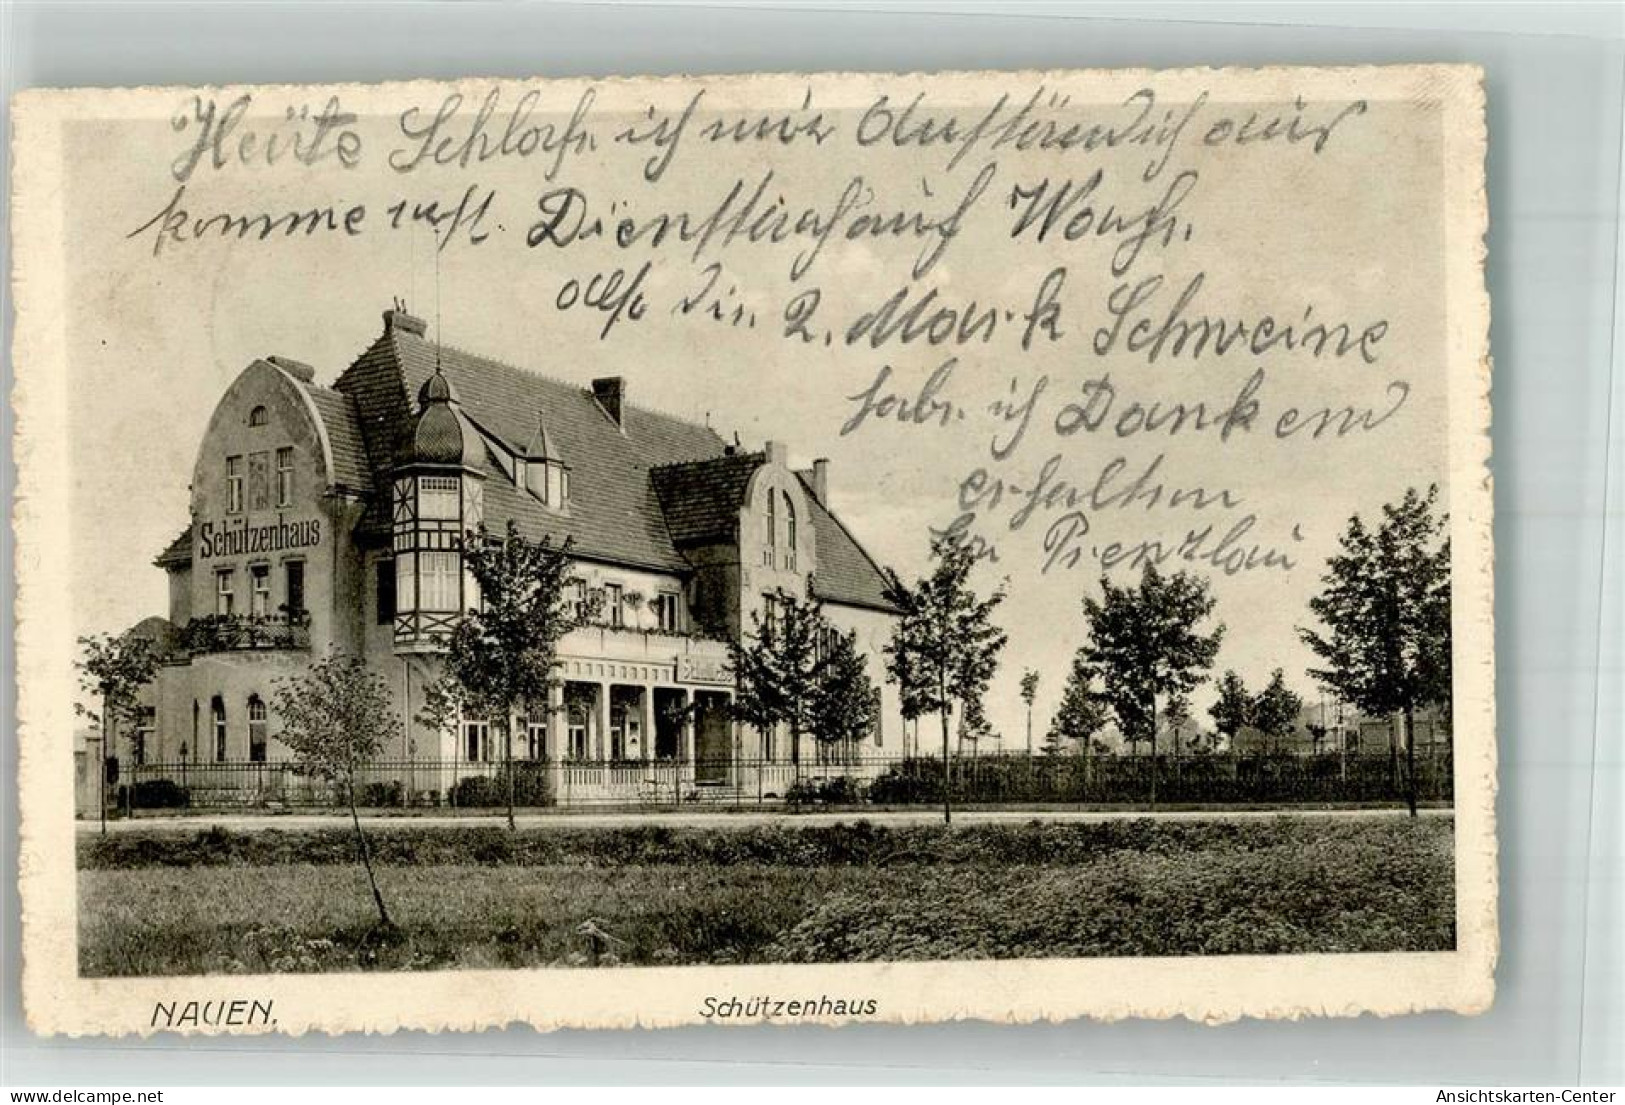 Heute Schlafe ich mir Anständich aus
komme erst Dienstag auf Wache.
also die 2. Mark Schweine
habe ich Dankend
erhalten
Prenzlau
Schützenhaus
NAUEN.
Schützenhaus
delcampe.net
Ansichtskarten-Center